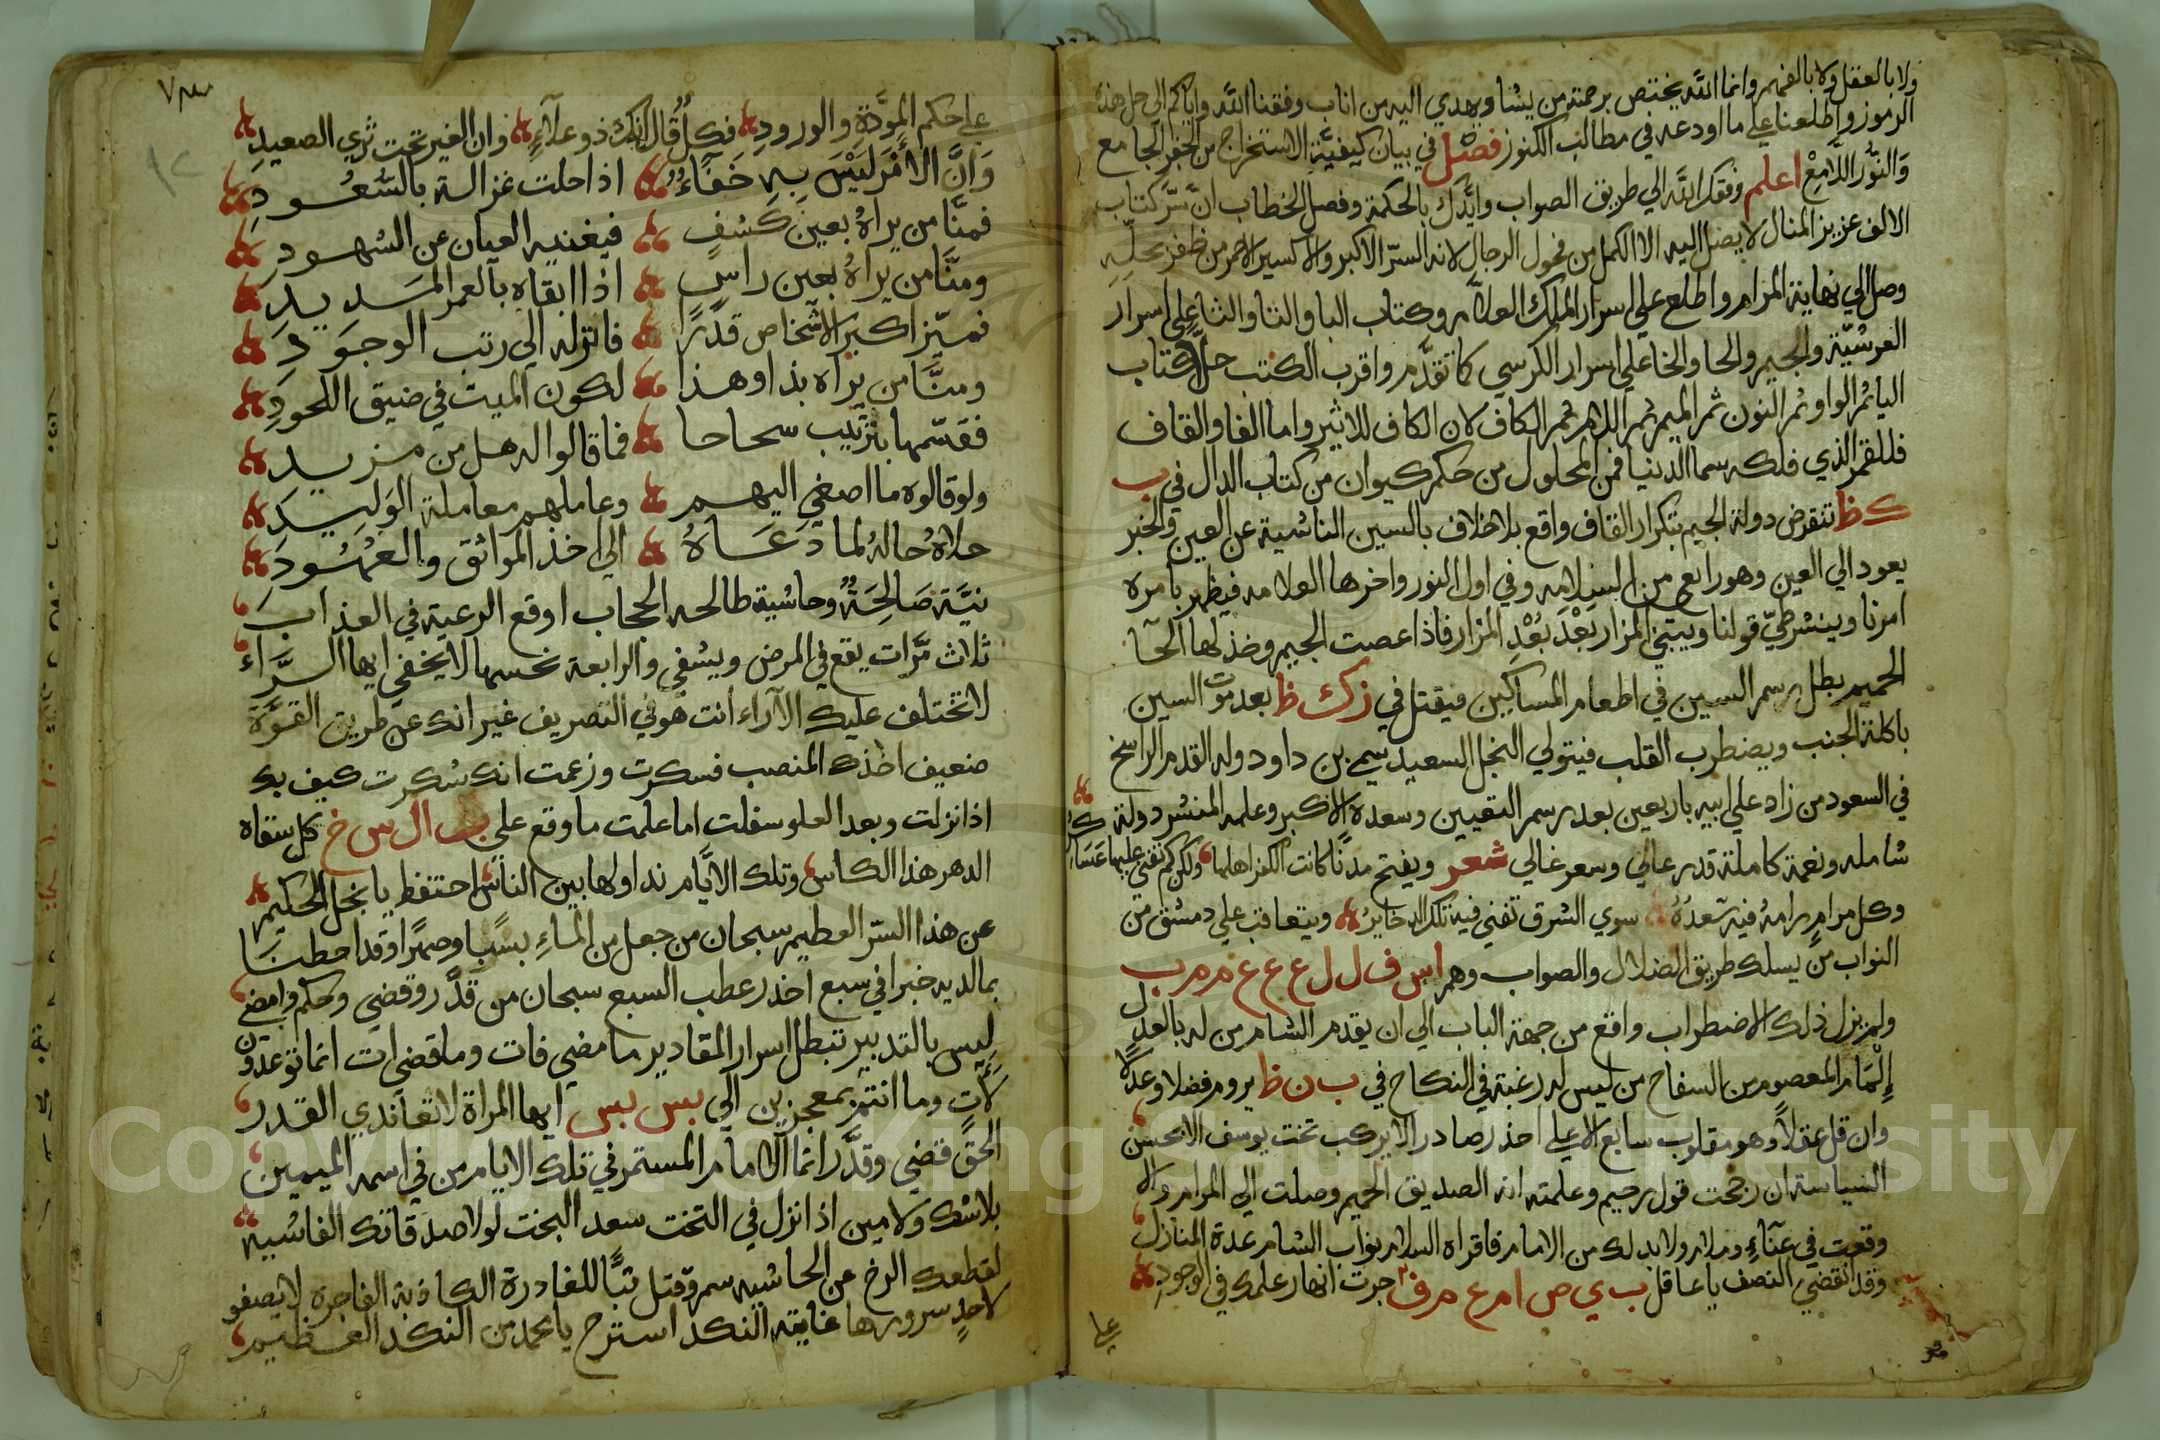 ولا بالعقل ولا بالفهم وانما الله يختص برحمته من يشا ويهدي اليه من اناب وفقنا الله واياكم الي حل هذه
الرموز واطلعنا علي ما اودعه في مطالب الكنوز فصل في بيان كيفيّة الاستخراج من الجفر الجامع
وَالنّور اللَّامِعْ اعلم وفقك الله الي طريق الصواب وايّدك بالحكمة وفصل الخطاب ان سّر كتاب
الالف عزيز المنال لا يصل اليه الا الكمل من فحول الرجال لانه السّر الاكبر والاكسير الاحمر من ظفر بحلّه
وصل الي نهاية المرام واطلع علي اسرار الملك العلاّم وكتاب البا والتا والثا علي اسرار
العرشيّة والجيم والحا والخا علي اسرار الكرسي كما تقدّم واقرب الكتب حلّا كتاب
اليا ثم الواو ثم النون ثم الميم ثم اللام ثم الكاف لان الكاف للاثير واما الفا والقاف
فللقمر الذي فلكه سما الدنيا فمن المحلول من حكم كيوان من كتاب الدال في ب
ك ظ تنقرض دولة الجيم بتكرار القاف واقع بلا خلاف بالسين الناشية عن العين والخبر
يعود الي العين وهو رابع من السلامه وفي اول النور واخرها العلامه فيظهر بامره
امرنا وينشر طيّ قولنا ويبتني المزار بَعْدَ بُعْدِ المزار فاذا عصت الجيم وخذلها الحا
الحميم بطل رسم السين في اطعام المساكين فيقتل في زك ظ بعد موت السين
باكلة الجنب ويضطرب القلب فيتولي النجل السعيد سمي بن داود وله القدم الراسخ
في السعود من زاد علي ابيه باربعين بعد رسم التعيين وسعده الاكبر وعلمه المنشر دولة
شامله ونعمة كاملة قدر عالي وسعر غالي شعر ويفتح مدنًا كانت الكفر اهلها ولكن كم تفني عليها عَسَاكرُ
وكل مرام رامهُ فيه سَعدُهُ سوي الشرق تفني فيه تلك الدخايرُ ويتعاقب علي دمشق من
النواب من يسلك طريق الضلال والصواب وهم اس ف ل ل ع ع ع م م ب
ولم يزل ذلك الاضطراب واقع من جهة الباب الي ان يقدم الشام من له بالعدل
إلْمَام المعصوم من السفاح من ليس له رغبة في النكاح في ب ن ظ يروم فضلا وعدلًا
وان قل عقلاً وهو مقلوب سابع الاعلي احذر صادر الا يركب تخت يوسف الا بحسن
السياسة ان رجحت قول رحيم وعلمته انه الصديق الحميم وصلت الي المرام والا
وقعت في عنَآءٍ وملام ولا بد لك من الامام فاقراه السلام بنواب الشام عدة المنازل
وقد انقضي النصف يا عاقل ب ي ص ا م ع م ف جرت انهار علمك في الوجودِ
علي
علي حكم المَودَّةِ والورودِ فكلٌ قال انك ذو علآءٍ وان الغير تحت ثري الصعيدِ
وَانَّ الاَمْرَ لَيْسَ بِهِ خَفَآءٌ اذا حلت غزالة بالسُّعُودِ
فمنَّا من يراهُ بعين كشفٍ فيغنيه العيان عن الشهودِ
ومنَّا من يراهُ بعين راسٍ اذا ابقاه بالعمر المَديدِ
فميّز اكبر الاشخاص قدرًا فانزله الي رتب الوجوَدِ
ومنَّا من يراه بذا وهذا لكون الميت في ضيق اللحودِ
فقسّمها بترتيب سحاحا فما قالوا له هل من مزيدِ
ولو قالوه ما اصغي اليهم وعاملهم معاملة الوَليدِ
حلاهُ حالهُ لما دَعَاهُ الي اخذ المواثق والعهُودِ
نيَّة صَالِحَةٌ وحاشية طالحه الحجاب اوقع الرعية في العذاب
ثلاث مَّرات يقع في المرض ويشفي والرابعة نحسها لا يخفي ايها السَّرَّاء
لا تختلف عليك الآراء انت هو في التصريف غير انك عن طريق القوَّة
ضعيف اخذك المنصب فسكرت وزعمت انك شكرت كيف بك
اذا نزلت وبعد العلو سفلت اما علمت ما وقع علي ب ال س خ كل سقاه
الدهر هذا الكاس وتلك الايّام نداولها بين الناس احتفظ يا نجل الحكيم
عن هذا السّر العظيم سبحان من جعل من الماء بسبًا وصهرًا وقد احطنا
بما لديه خبرا في سبع احذر عطب السبع سبحان من قدّر وقضي وحكم وامضي
ليس بالتدبير تبطل اسرار المقادير ما مضي فات وما قضي ات انما توعدون
لآتٍ وما انتم بمعجزين الي بس بس ايها المراة لا تعاندي القدر
الحق قضي وقدَّر انما الامام المستمر في تلك الايام من في اسمه الميمين
بلا شك ولا مين اذا نزل في التخت سعد البخت لولا صدقاتك الفاشيه
لقطعك الرخ عن الحاشيه سم وقتل تبًّا للغادرة الكاذبة الفاجرة لا يصفو
لاحدٍ سرورها غايته النكد استرح يا محمد من النكد العظيم